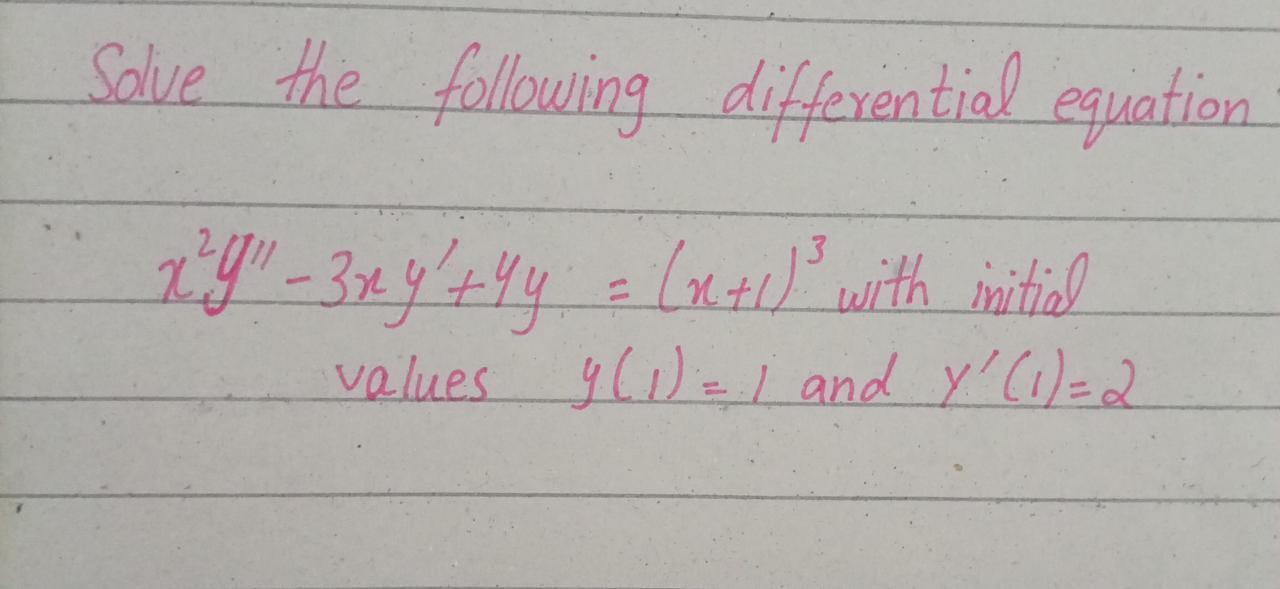 Solve the following differential equation
x²y'' - 3xy' + 4y = (x+1)³ with initial
values y(1) = 1 and y'(1) = 2